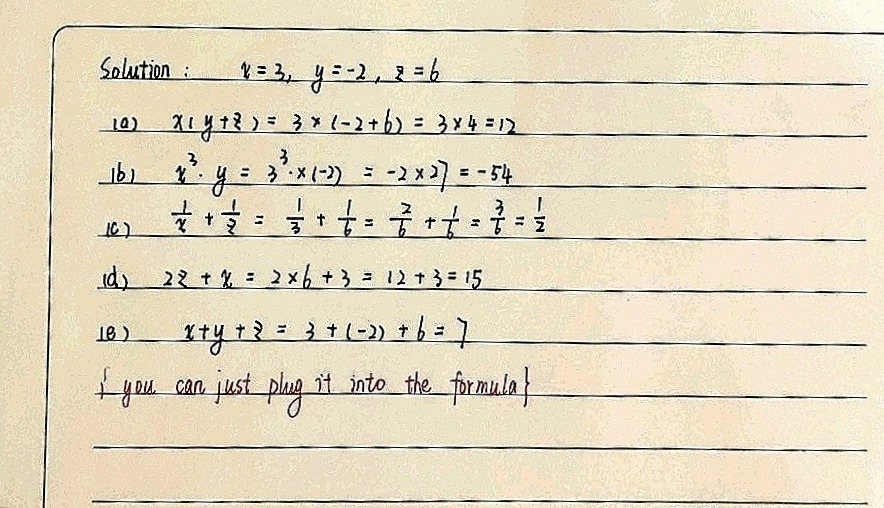 Solution : x = 3, y = -2, z = 6
(a) x( y + z ) = 3 × (-2+6) = 3 × 4 = 12
(b) x³· y = 3³·×(-2) = -2 × 27 = -54
(c) 1/x + 1/z = 1/3 + 1/6 = 2/6 + 1/6 = 3/6 = 1/2
(d) 2z + x = 2×6 + 3 = 12 + 3 = 15
(e) x+y+z = 3 + (-2) + 6 = 7
{ you can just plug it into the formula}